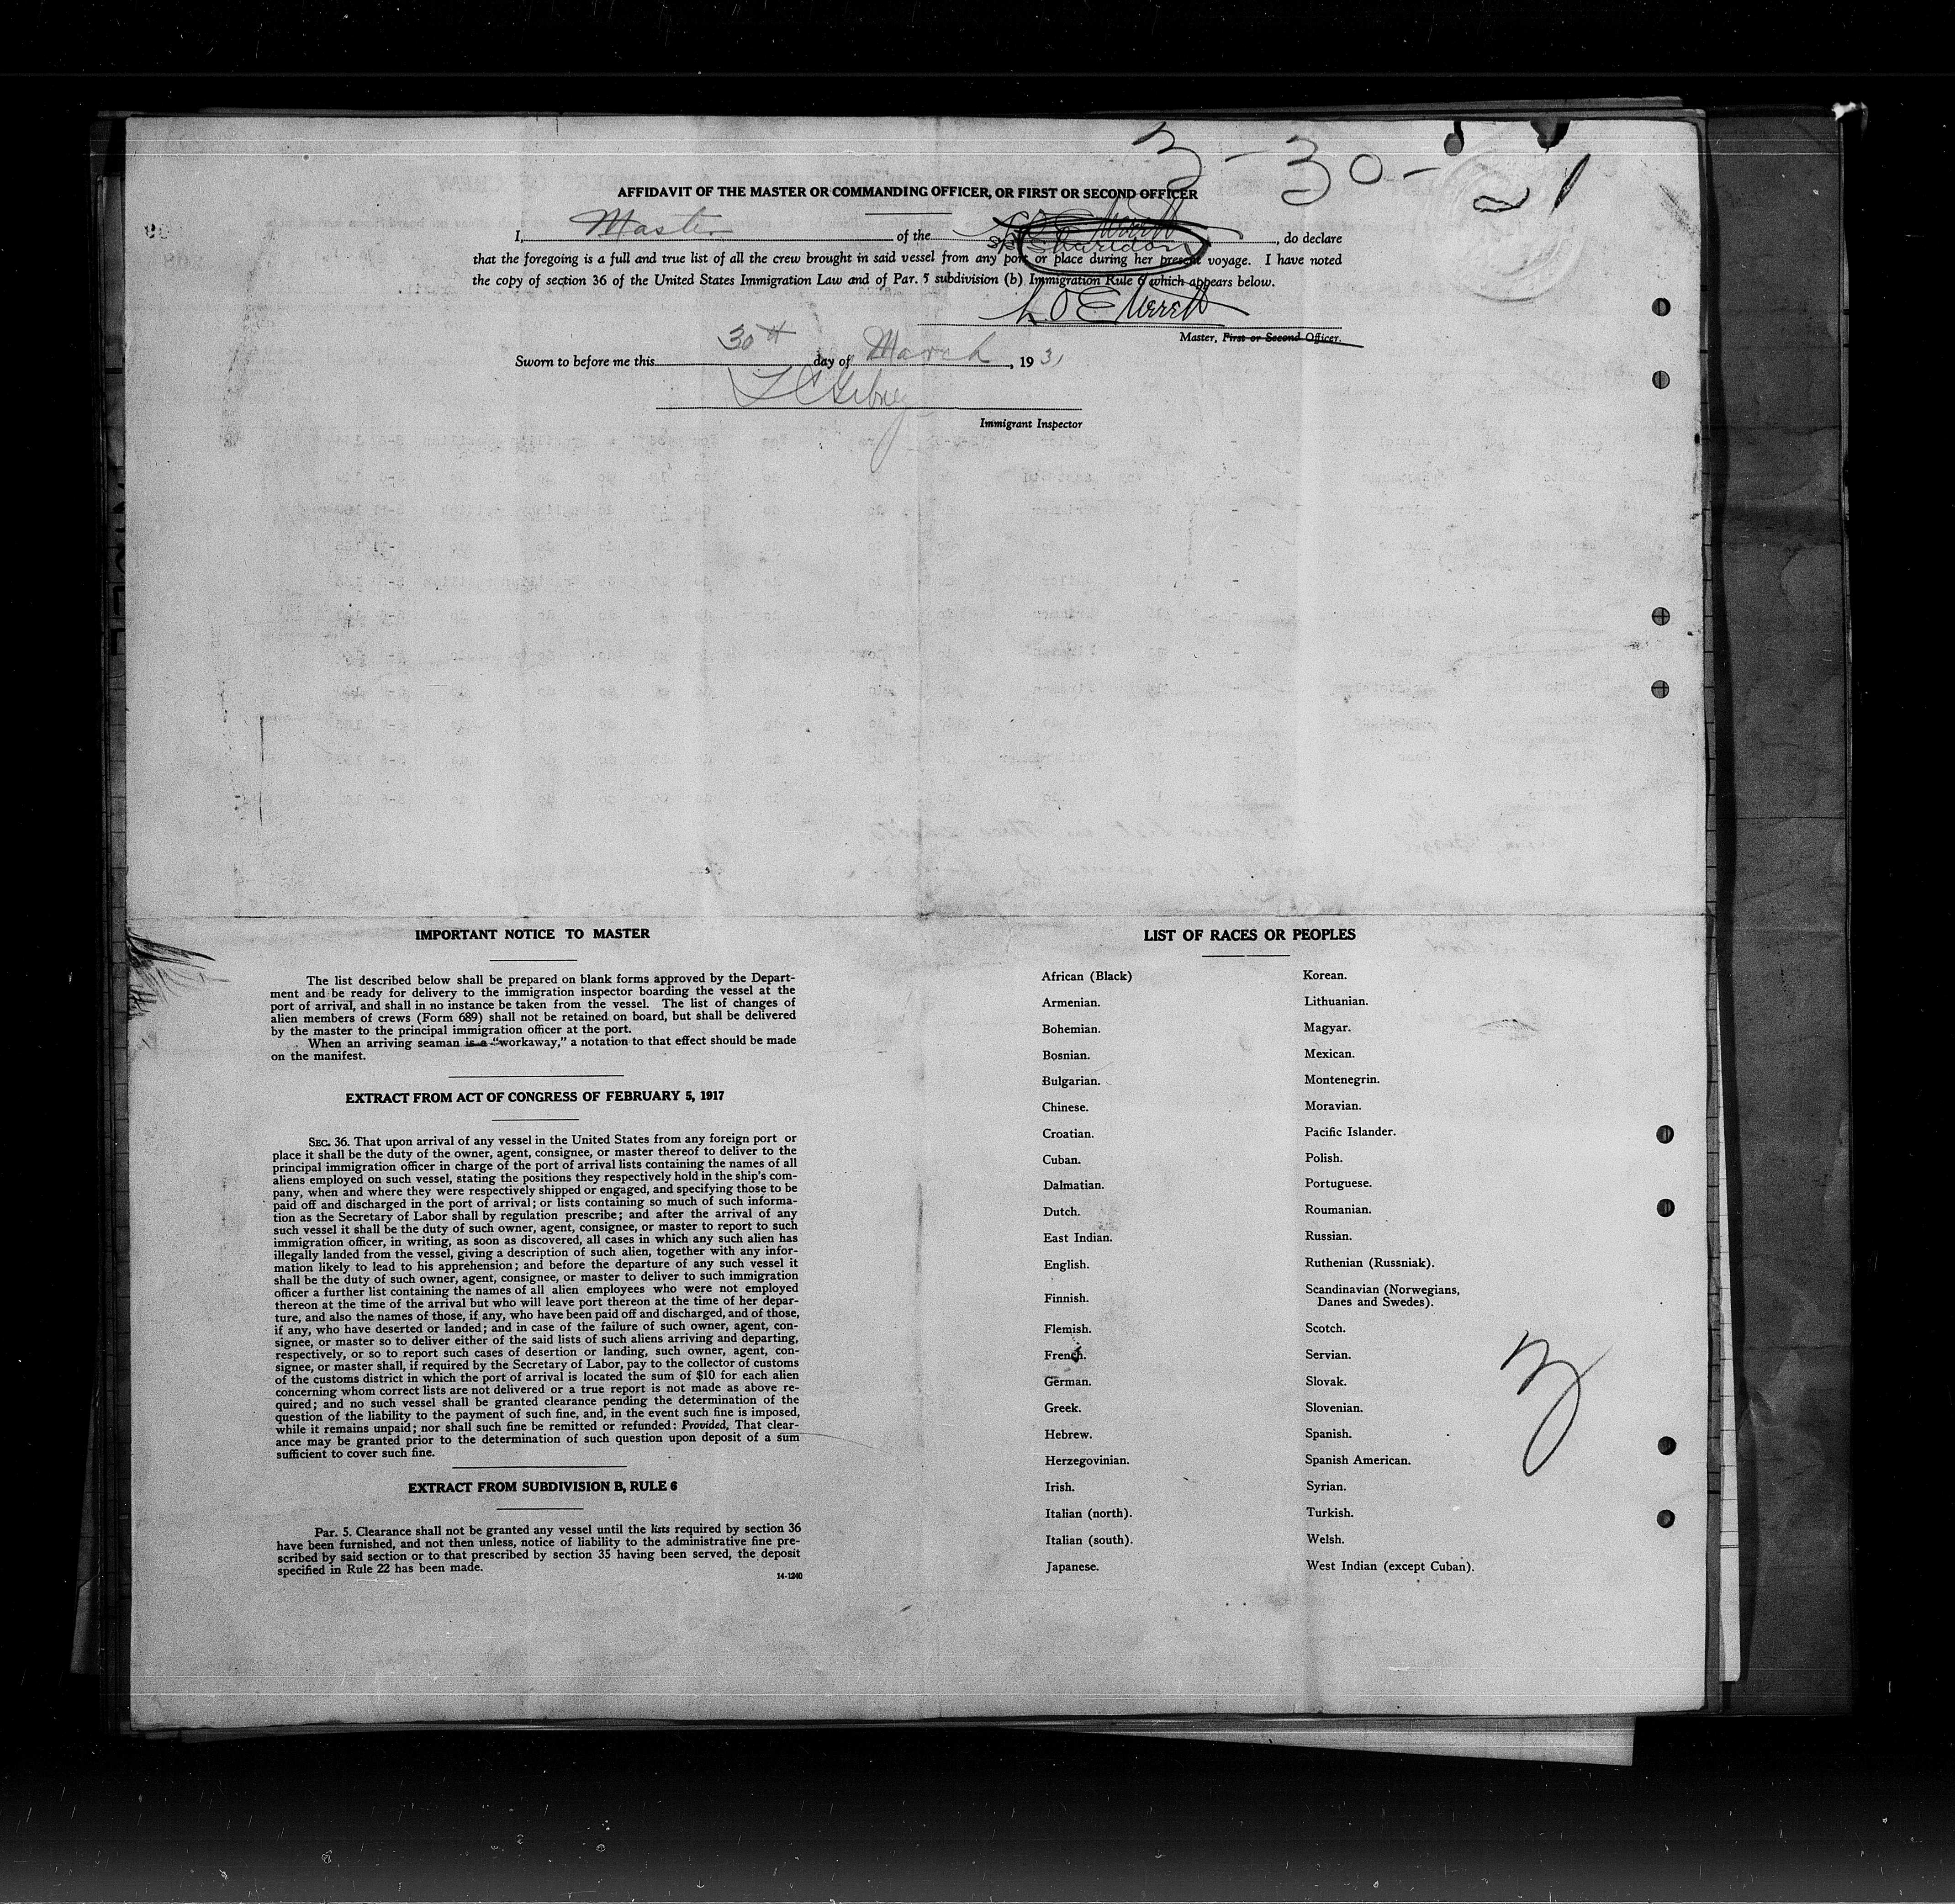 3-30-21
AFFIDAVIT OF THE MASTER OR COMMANDING OFFICER, OR FIRST OR SECOND OFFICER
I, Master of the , do declare
that the foregoing is a full and true list of all the crew brought in said vessel from any port or place during her present voyage. I have noted
the copy of section 36 of the United States Immigration Law and of Par. 5 subdivision (b) Immigration Rule 6 which appears below.
Master, First or Second Officer.
Sworn to before me this 30th day of March, 1931
Immigrant Inspector
IMPORTANT NOTICE TO MASTER
The list described below shall be prepared on blank forms approved by the Depart-
ment and be ready for delivery to the immigration inspector boarding the vessel at the
port of arrival, and shall in no instance be taken from the vessel. The list of changes of
alien members of crews (Form 689) shall not be retained on board, but shall be delivered
by the master to the principal immigration officer at the port.
When an arriving seaman is a "workaway," a notation to that effect should be made
on the manifest.
EXTRACT FROM ACT OF CONGRESS OF FEBRUARY 5, 1917
SEC. 36. That upon arrival of any vessel in the United States from any foreign port or
place it shall be the duty of the owner, agent, consignee, or master thereof to deliver to the
principal immigration officer in charge of the port of arrival lists containing the names of all
aliens employed on such vessel, stating the positions they respectively hold in the ship's com-
pany, when and where they were respectively shipped or engaged, and specifying those to be
paid off and discharged in the port of arrival; or lists containing so much of such informa-
tion as the Secretary of Labor shall by regulation prescribe; and after the arrival of any
such vessel it shall be the duty of such owner, agent, consignee, or master to report to such
immigration officer, in writing, as soon as discovered, all cases in which any such alien has
illegally landed from the vessel, giving a description of such alien, together with any infor-
mation likely to lead to his apprehension; and before the departure of any such vessel it
shall be the duty of such owner, agent, consignee, or master to deliver to such immigration
officer a further list containing the names of all alien employees who were not employed
thereon at the time of the arrival but who will leave port thereon at the time of her depar-
ture, and also the names of those, if any, who have been paid off and discharged, and of those,
if any, who have deserted or landed; and in case of the failure of such owner, agent, con-
signee, or master so to deliver either of the said lists of such aliens arriving and departing,
respectively, or so to report such cases of desertion or landing, such owner, agent, con-
signee, or master shall, if required by the Secretary of Labor, pay to the collector of customs
of the customs district in which the port of arrival is located the sum of $10 for each alien
concerning whom correct lists are not delivered or a true report is not made as above re-
quired; and no such vessel shall be granted clearance pending the determination of the
question of the liability to the payment of such fine, and, in the event such fine is imposed,
while it remains unpaid; nor shall such fine be remitted or refunded: Provided, That clear-
ance may be granted prior to the determination of such question upon deposit of a sum
sufficient to cover such fine.
EXTRACT FROM SUBDIVISION B, RULE 6
Par. 5. Clearance shall not be granted any vessel until the lists required by section 36
have been furnished, and not then unless, notice of liability to the administrative fine pre-
scribed by said section or to that prescribed by section 35 having been served, the deposit
specified in Rule 22 has been made.
14-1240
LIST OF RACES OR PEOPLES
African (Black)
Armenian.
Bohemian.
Bosnian.
Bulgarian.
Chinese.
Croatian.
Cuban.
Dalmatian.
Dutch.
East Indian.
English.
Finnish.
Flemish.
French.
German.
Greek.
Hebrew.
Herzegovinian.
Irish.
Italian (north).
Italian (south).
Japanese.
Korean.
Lithuanian.
Magyar.
Mexican.
Montenegrin.
Moravian.
Pacific Islander.
Polish.
Portuguese.
Roumanian.
Russian.
Ruthenian (Russniak).
Scandinavian (Norwegians,
Danes and Swedes).
Scotch.
Servian.
Slovak.
Slovenian.
Spanish.
Spanish American.
Syrian.
Turkish.
Welsh.
West Indian (except Cuban).
3